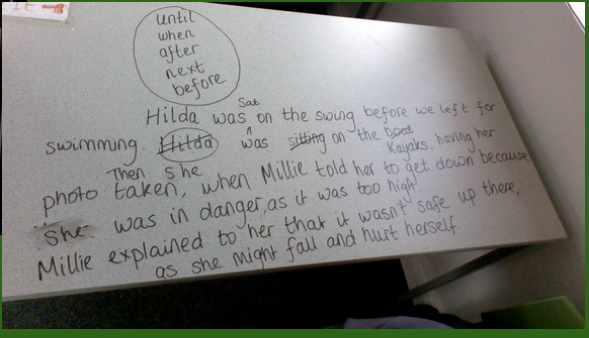 until
when
after
next
before
Sat
Hilda was on the swing before we left for
swimming. Hilda was sitting on the boat
Kayaks, having her
Then she
photo taken, when Millie told her to get down because
she was in danger, as it was too high.
Millie explained to her that it wasn't safe up there,
as she might fall and hurt herself.